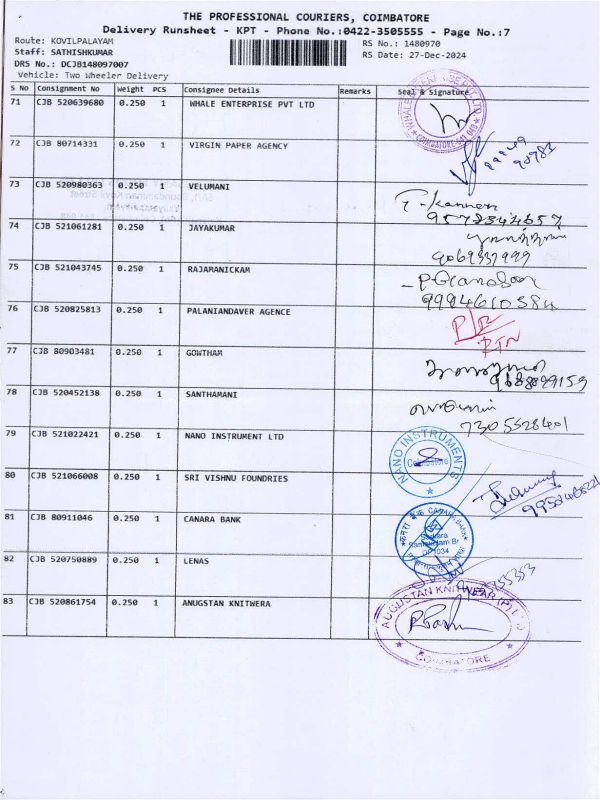 THE PROFESSIONAL COURIERS, COIMBATORE
Delivery Runsheet - KPT - Phone No.:0422-3505555 - Page No.:7
Route: KOVILPALAYAM
RS No.: 1480970
Staff: SATHISHKUMAR
RS Date: 27-Dec-2024
DRS No.: DCJB148097007
Vehicle: Two Wheeler Delivery
S No Consignment No Weight PCS Consignee Details Remarks Seal & Signature
71 CJB 520639680 0.250 1 WHALE ENTERPRISE PVT LTD
COIMBATORE-641 040
72 CJB 80714331 0.250 1 VIRGIN PAPER AGENCY
73 CJB 520980363 0.250 1 VELUMANI
T. Kannan
9578344657
74 CJB 521061281 0.250 1 JAYAKUMAR
9069337999
75 CJB 521043745 0.250 1 RAJAMANICKAM
9994610384
76 CJB 520825813 0.250 1 PALANIANDAVER AGENCE
RTN
77 CJB 80903481 0.250 1 GOWTHAM
78 CJB 520452138 0.250 1 SANTHAMANI
7305528401
79 CJB 521022421 0.250 1 NANO INSTRUMENT LTD
NANO INSTRUMENTS
Coimbatore
80 CJB 521066008 0.250 1 SRI VISHNU FOUNDRIES
81 CJB 80911046 0.250 1 CANARA BANK
केनरा बैंक CANARA BANK
DP1034
82 CJB 520750889 0.250 1 LENAS
83 CJB 520861754 0.250 1 ANUGSTAN KNITWERA
AUGUSTAN KNITWEAR (P) LTD
COIMBATORE